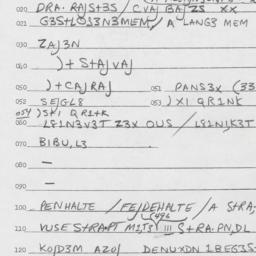 020 DRA. RAJS+3S / CVAJ BAJZS XX
021 G3S+L03N3MEM / A LANG3 MEM
030 ZAJ3N
040 )+ S+AJVAJ
050 )+CAJRAJ 051 PANS3X (33
052 SEJGL8 053 )XI QR1NK
054 )3KI QR1+K
060 L81N3V3T Z3X OUS / L81NJK3T
070 BIBU,L3
080 —
090 —
100 PENHALTE / FEJDEHALTE / A S+RA,
110 VUSE S+RAPT M1,T3 III S+RA.PN,DL
120 KOJD3M AZOJ DENUXDN 18EG3S